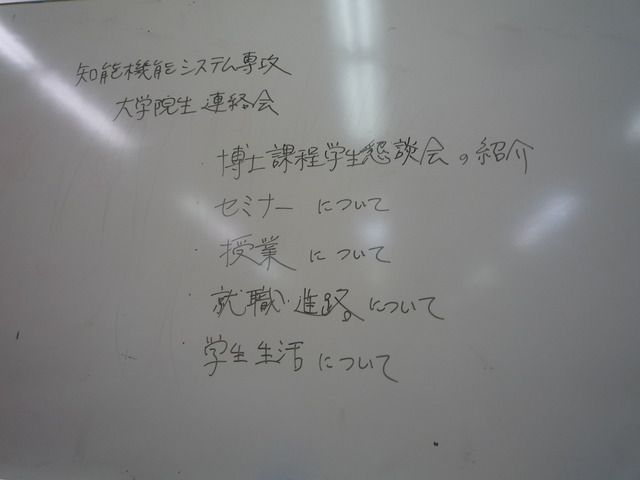 知能機能システム専攻
大学院生連絡会
・博士課程学生懇談会の紹介
・セミナーについて
・授業について
・就職・進路について
・学生生活について